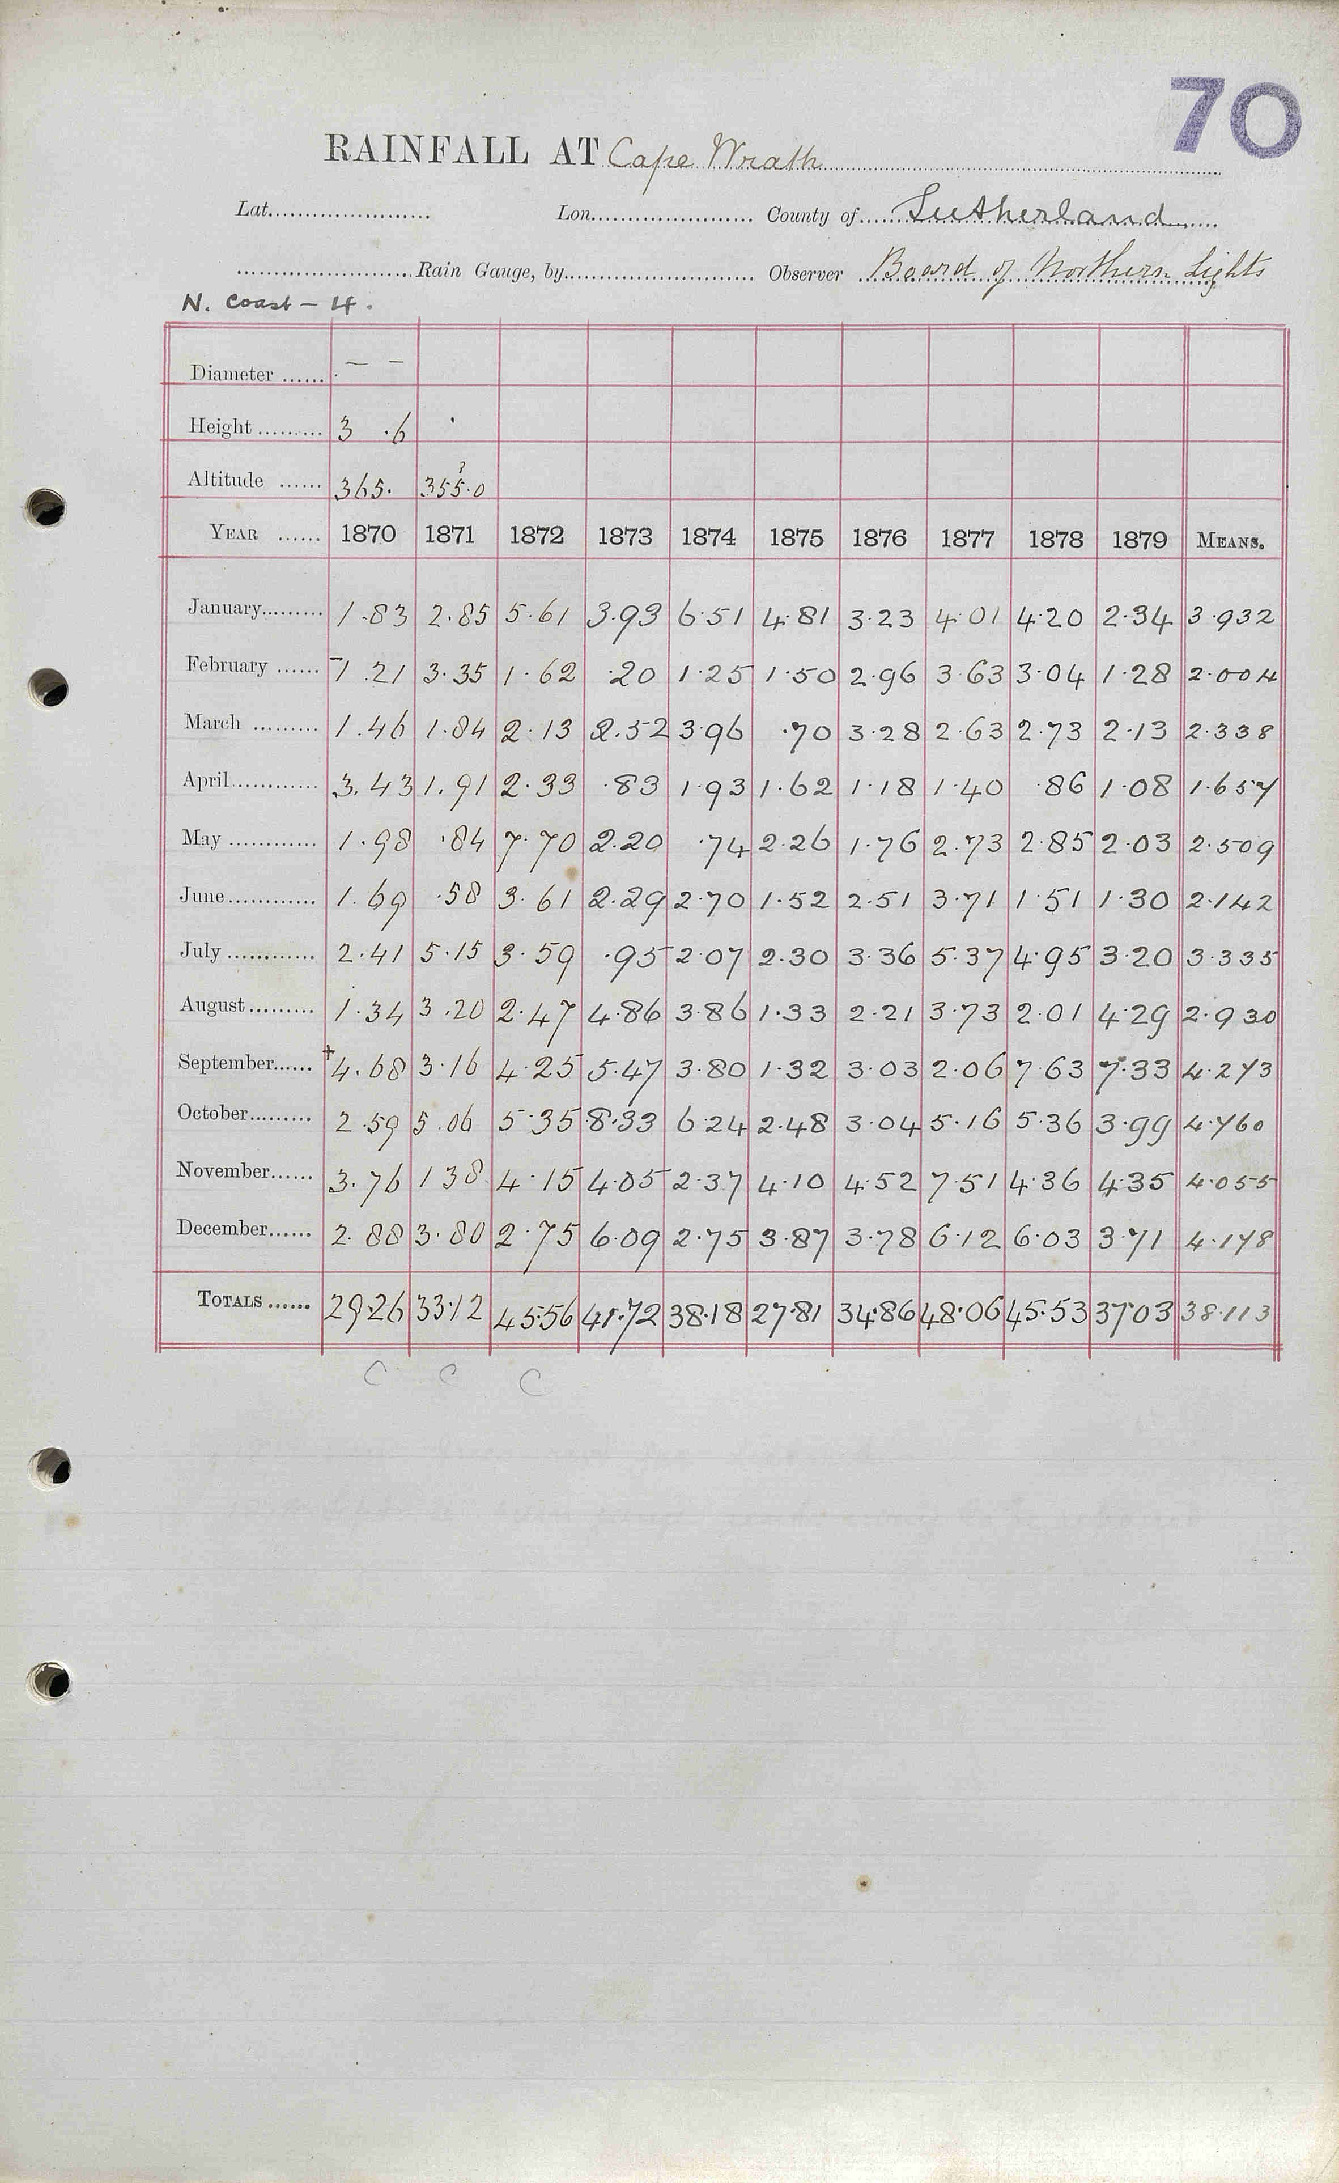 70
RAINFALL AT Cape Wrath
Lat. Lon. County of Sutherland
Rain Gauge, by Observer Board of Northern Lights
N. Coast - 4.
Diameter ...... - -
Height ......... 3 .6
Altitude ...... 365. 355.0 ?
YEAR ...... 1870 1871 1872 1873 1874 1875 1876 1877 1878 1879 MEANS.
January......... 1.83 2.85 5.61 3.93 6.51 4.81 3.23 4.01 4.20 2.34 3.932
February ...... 1.21 3.35 1.62 .20 1.25 1.50 2.96 3.63 3.04 1.28 2.004
March ......... 1.46 1.84 2.13 2.52 3.96 .70 3.28 2.63 2.73 2.13 2.338
April............ 3.43 1.91 2.33 .83 1.93 1.62 1.18 1.40 .86 1.08 1.657
May ............ 1.98 .84 7.70 2.20 .74 2.26 1.76 2.73 2.85 2.03 2.509
June............ 1.69 .58 3.61 2.29 2.70 1.52 2.51 3.71 1.51 1.30 2.142
July ............ 2.41 5.15 3.59 .95 2.07 2.30 3.36 5.37 4.95 3.20 3.335
August......... 1.34 3.20 2.47 4.86 3.86 1.33 2.21 3.73 2.01 4.29 2.930
September...... +4.68 3.16 4.25 5.47 3.80 1.32 3.03 2.06 7.63 7.33 4.273
October......... 2.59 5.06 5.35 8.33 6.24 2.48 3.04 5.16 5.36 3.99 4.760
November...... 3.76 1 38 4.15 4.05 2.37 4.10 4.52 7.51 4.36 4.35 4.055
December...... 2.88 3.80 2.75 6.09 2.75 3.87 3.78 6.12 6.03 3.71 4.178
TOTALS ...... 29.26 33.12 45.56 41.72 38.18 27.81 34.86 48.06 45.53 37.03 38.113
C C C